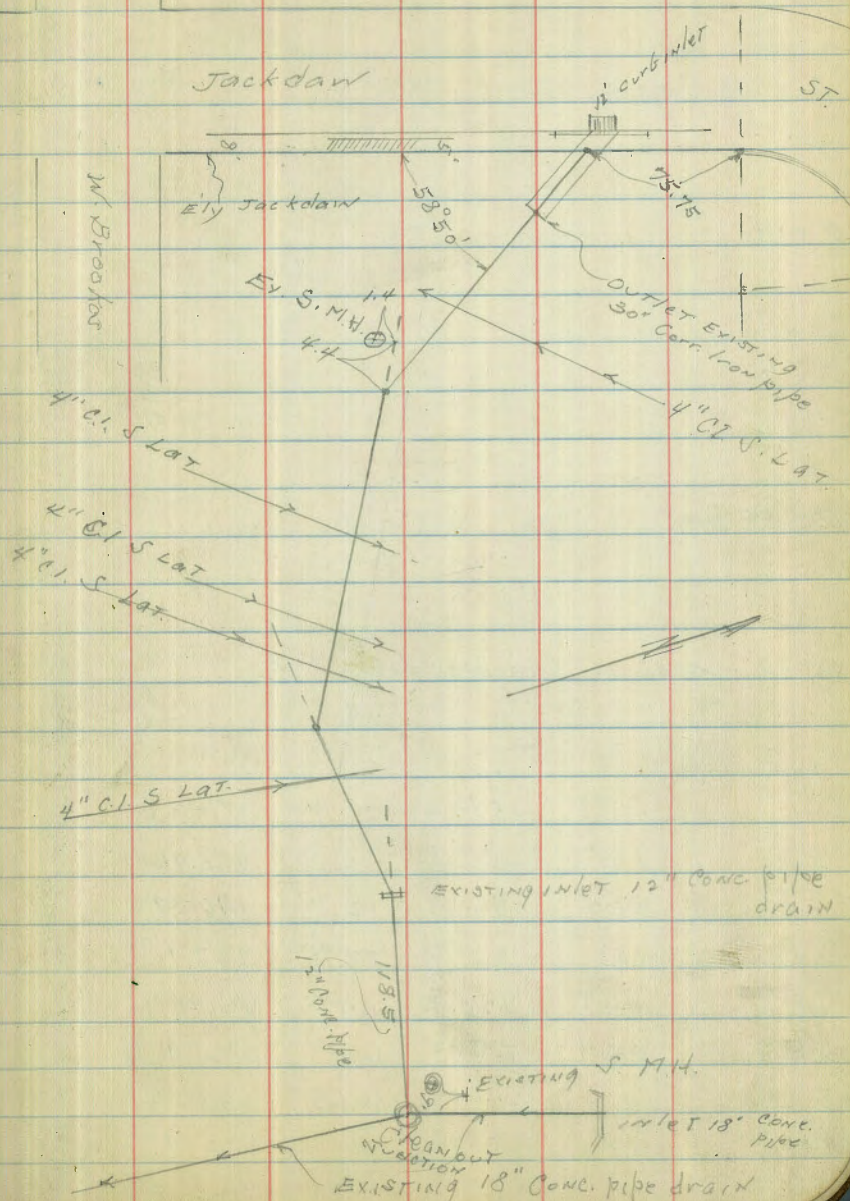 Jackdaw
12' curb inlet
ST.
8'
5'
75.75
W. Brookes
E'ly Jackdaw
58°50'
Ex. S. M.H.
1.4
4.4
OUTLET EXISTING
30" Corr. Iron pipe
4" C.I. S. Lat.
4" C.I. S Lat
4" C.I. S Lat
4" C.I. S Lat.
4" C.I. S Lat.
EXISTING INLET 12" CONC. pipe
drain
12" Conc. pipe
118.5
EXISTING S. M.H.
INLET 18" CONC.
pipe
Clean out
Junction
EXISTING 18" CONC. pipe drain